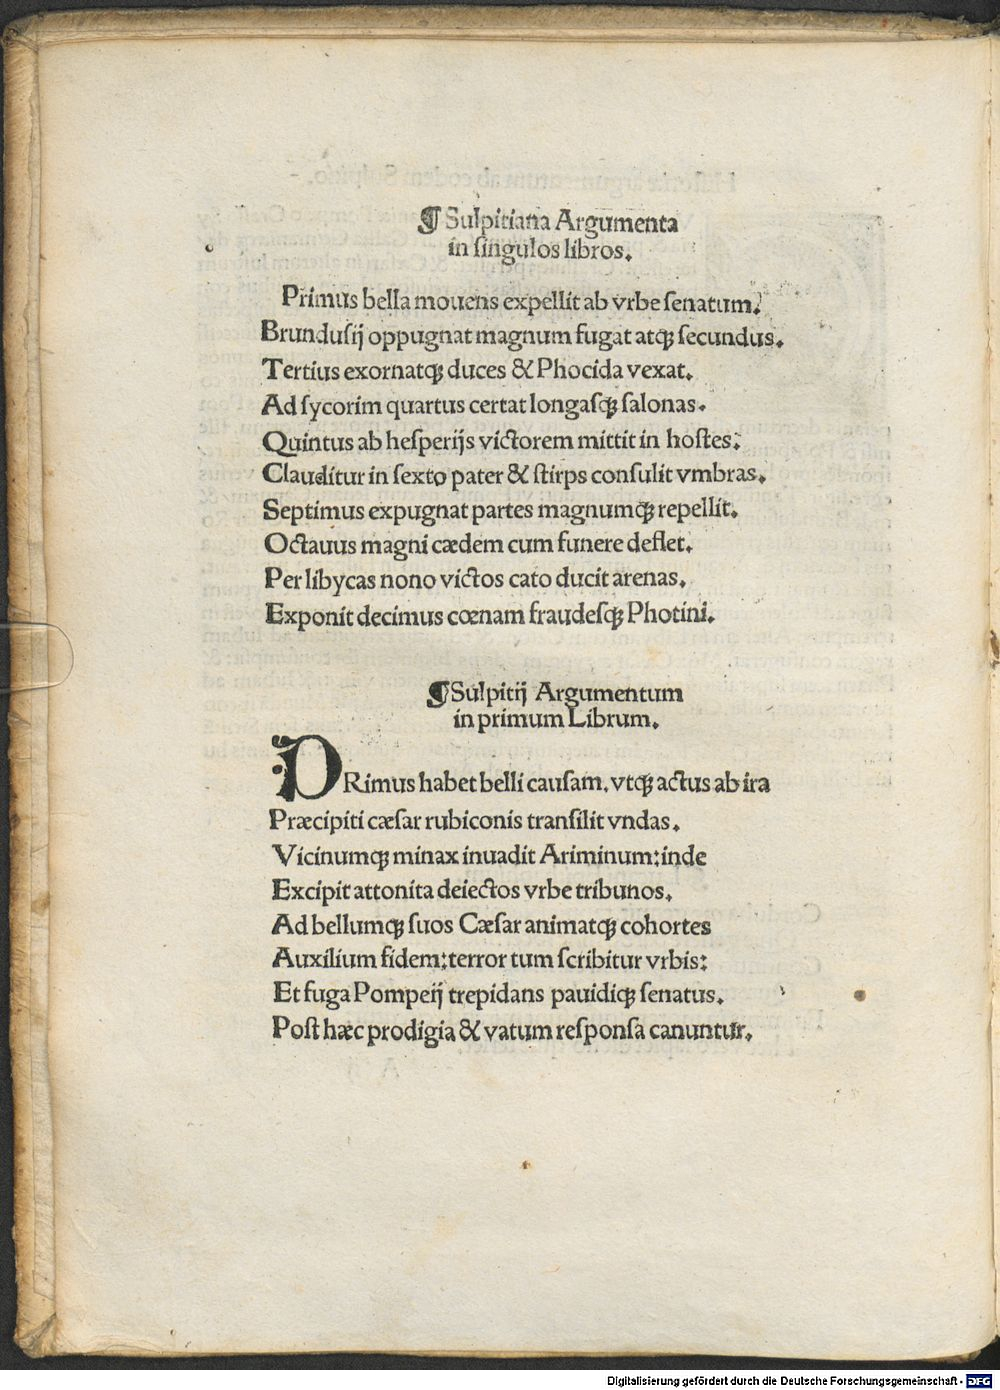 ¶ Sulpitiana Argumenta
in ſingulos libros.
Primus bella mouens expellit ab vrbe ſenatum.
Brunduſij oppugnat magnum fugat atqꝫ ſecundus.
Tertius exornatqꝫ duces & Phocida vexat.
Ad ſycorim quartus certat longaſqꝫ ſalonas.
Quintus ab heſperijs victorem mittit in hoſtes.
Clauditur in ſexto pater & ſtirps conſulit vmbras.
Septimus expugnat partes magnumqꝫ repellit.
Octauus magni cædem cum funere deflet.
Per libycas nono victos cato ducit arenas.
Exponit decimus cœnam fraudeſqꝫ Photini.
¶ Sulpitij Argumentum
in primum Librum.
PRimus habet belli cauſam, vtqꝫ actus ab ira
Præcipiti cæſar rubiconis tranſilit vndas.
Vicinumqꝫ minax inuadit Ariminum: inde
Excipit attonita deiectos vrbe tribunos.
Ad bellumqꝫ ſuos Cæſar animatqꝫ cohortes
Auxilium fidem: terror tum ſcribitur vrbis:
Et fuga Pompeij trepidans pauidiqꝫ ſenatus.
Poſt hæc prodigia & vatum reſponſa canuntur.
Digitalisierung gefördert durch die Deutsche Forschungsgemeinschaft - DFG